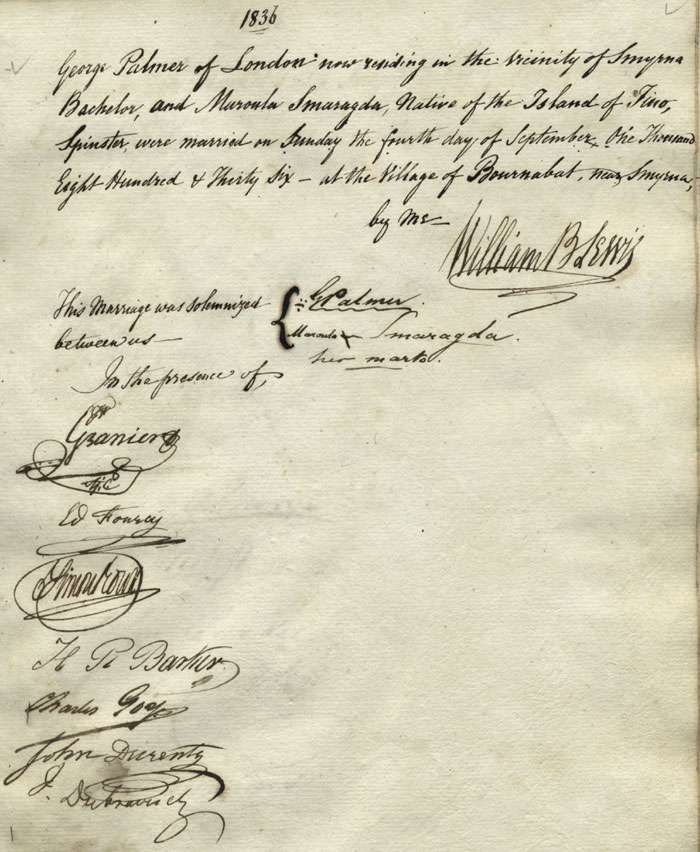 1836
George Palmer of London now residing in the vicinity of Smyrna
Bachelor, and Maroula Smaragda, Native of the Island of Tino,
Spinster, were married on Sunday the fourth day of September, One Thousand
Eight Hundred & Thirty Six – at the Village of Bournabat, near Smyrna,
by me
William B Lewis
This Marriage was solemnized
between us
G Palmer
Maroula Smaragda.
her mark.
In the presence of,
Granier
Ed
H R Barker
Charles
John Durenty
J. Dubrovich